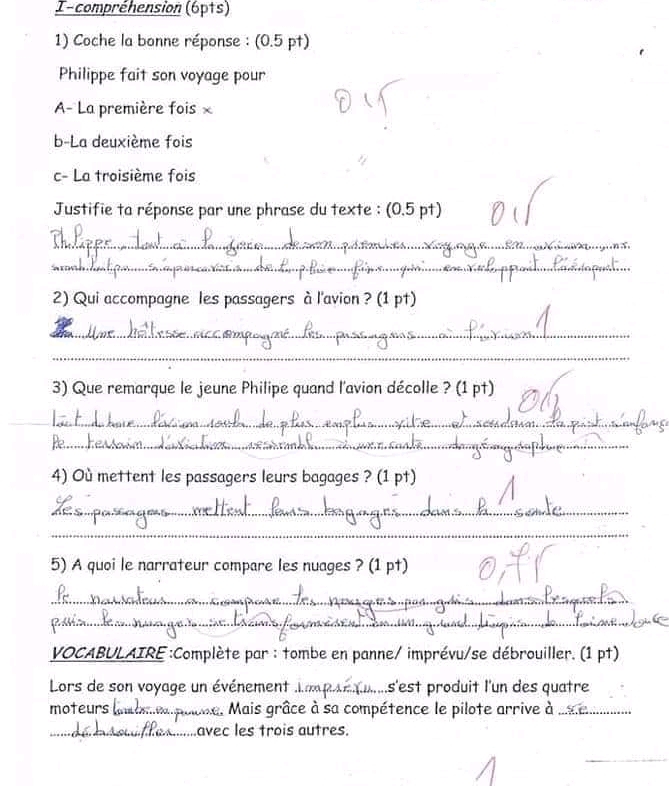 I-compréhension (6pts)
1) Coche la bonne réponse : (0.5 pt)
Philippe fait son voyage pour
A- La première fois ×
0,5
b-La deuxième fois
c- La troisième fois
Justifie ta réponse par une phrase du texte : (0.5 pt) 0,5
Philippe, tout à la joie de son premier voyage en avion, ne
de la pluie fine qui enveloppait l'aéroport
2) Qui accompagne les passagers à l'avion ? (1 pt)
Une hôtesse accompagne les passagers à l'avion 1
3) Que remarque le jeune Philipe quand l'avion décolle ? (1 pt)
l'avion roule de plus en plus vite et soudain la piste s'enfonce
le terrain d'aviation à une carte
4) Où mettent les passagers leurs bagages ? (1 pt) 1
Les passagers mettent leurs bagages dans la soute
5) A quoi le narrateur compare les nuages ? (1 pt) 0,75
Le narrateur a compare les nuages gris dans
puis les nuages se en un grand de laine
VOCABULAIRE :Complète par : tombe en panne/ imprévu/se débrouiller. (1 pt)
Lors de son voyage un événement imprévu s'est produit l'un des quatre
moteurs tombe en panne. Mais grâce à sa compétence le pilote arrive à se
débrouiller avec les trois autres.
1